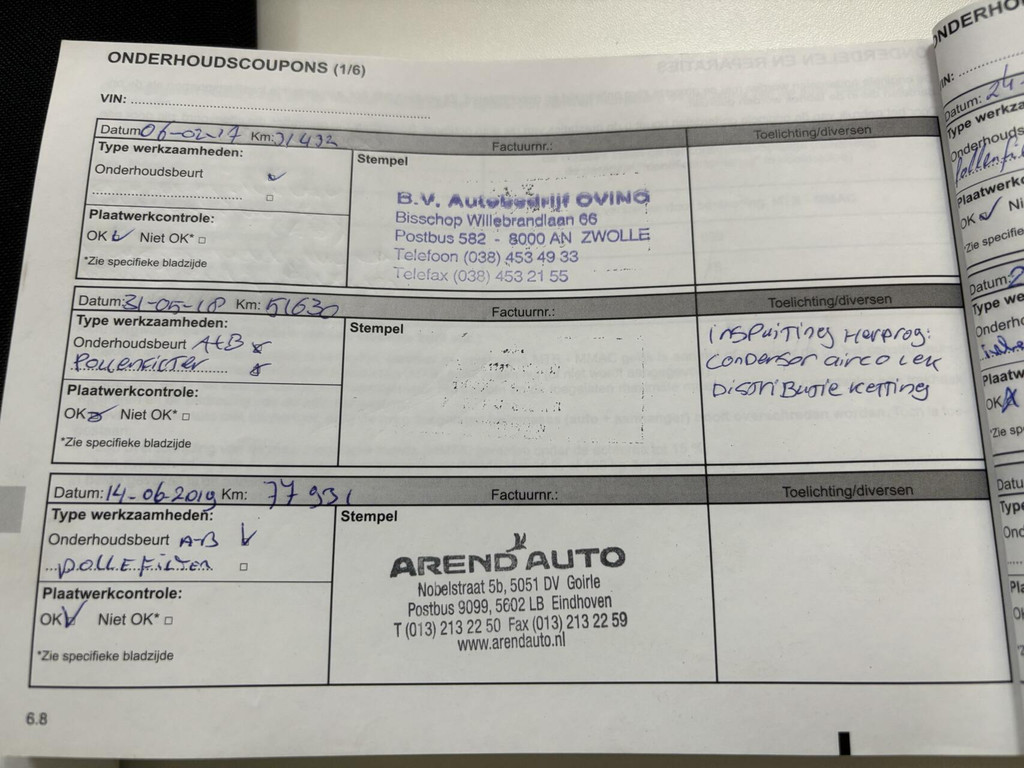 ONDERHOUDSCOUPONS (1/6)
VIN:
Datum: 06-02-17 Km: 31432 Factuurnr.: Toelichting/diversen
Type werkzaamheden:
Onderhoudsbeurt
Plaatwerkcontrole:
OK Niet OK*
*Zie specifieke bladzijde
Stempel
B.V. Autobedrijf OVING
Bisschop Willebrandlaan 66
Postbus 582 - 8000 AN ZWOLLE
Telefoon (038) 453 49 33
Telefax (038) 453 21 55
Datum: 31-05-18 Km: 51630 Factuurnr.: Toelichting/diversen
Type werkzaamheden:
Onderhoudsbeurt A+B
Pollenfilter
Plaatwerkcontrole:
OK Niet OK*
*Zie specifieke bladzijde
Stempel
inspuiting herprog.
condensor airco lek
Distributie ketting
Datum: 14-06-2019 Km: 77931 Factuurnr.: Toelichting/diversen
Type werkzaamheden:
Onderhoudsbeurt A-B
pollefilter
Plaatwerkcontrole:
OK Niet OK*
*Zie specifieke bladzijde
Stempel
AREND AUTO
Nobelstraat 5b, 5051 DV Goirle
Postbus 9099, 5602 LB Eindhoven
T (013) 213 22 50 Fax (013) 213 22 59
www.arendauto.nl
6.8
Datum: 24-
Type
OK